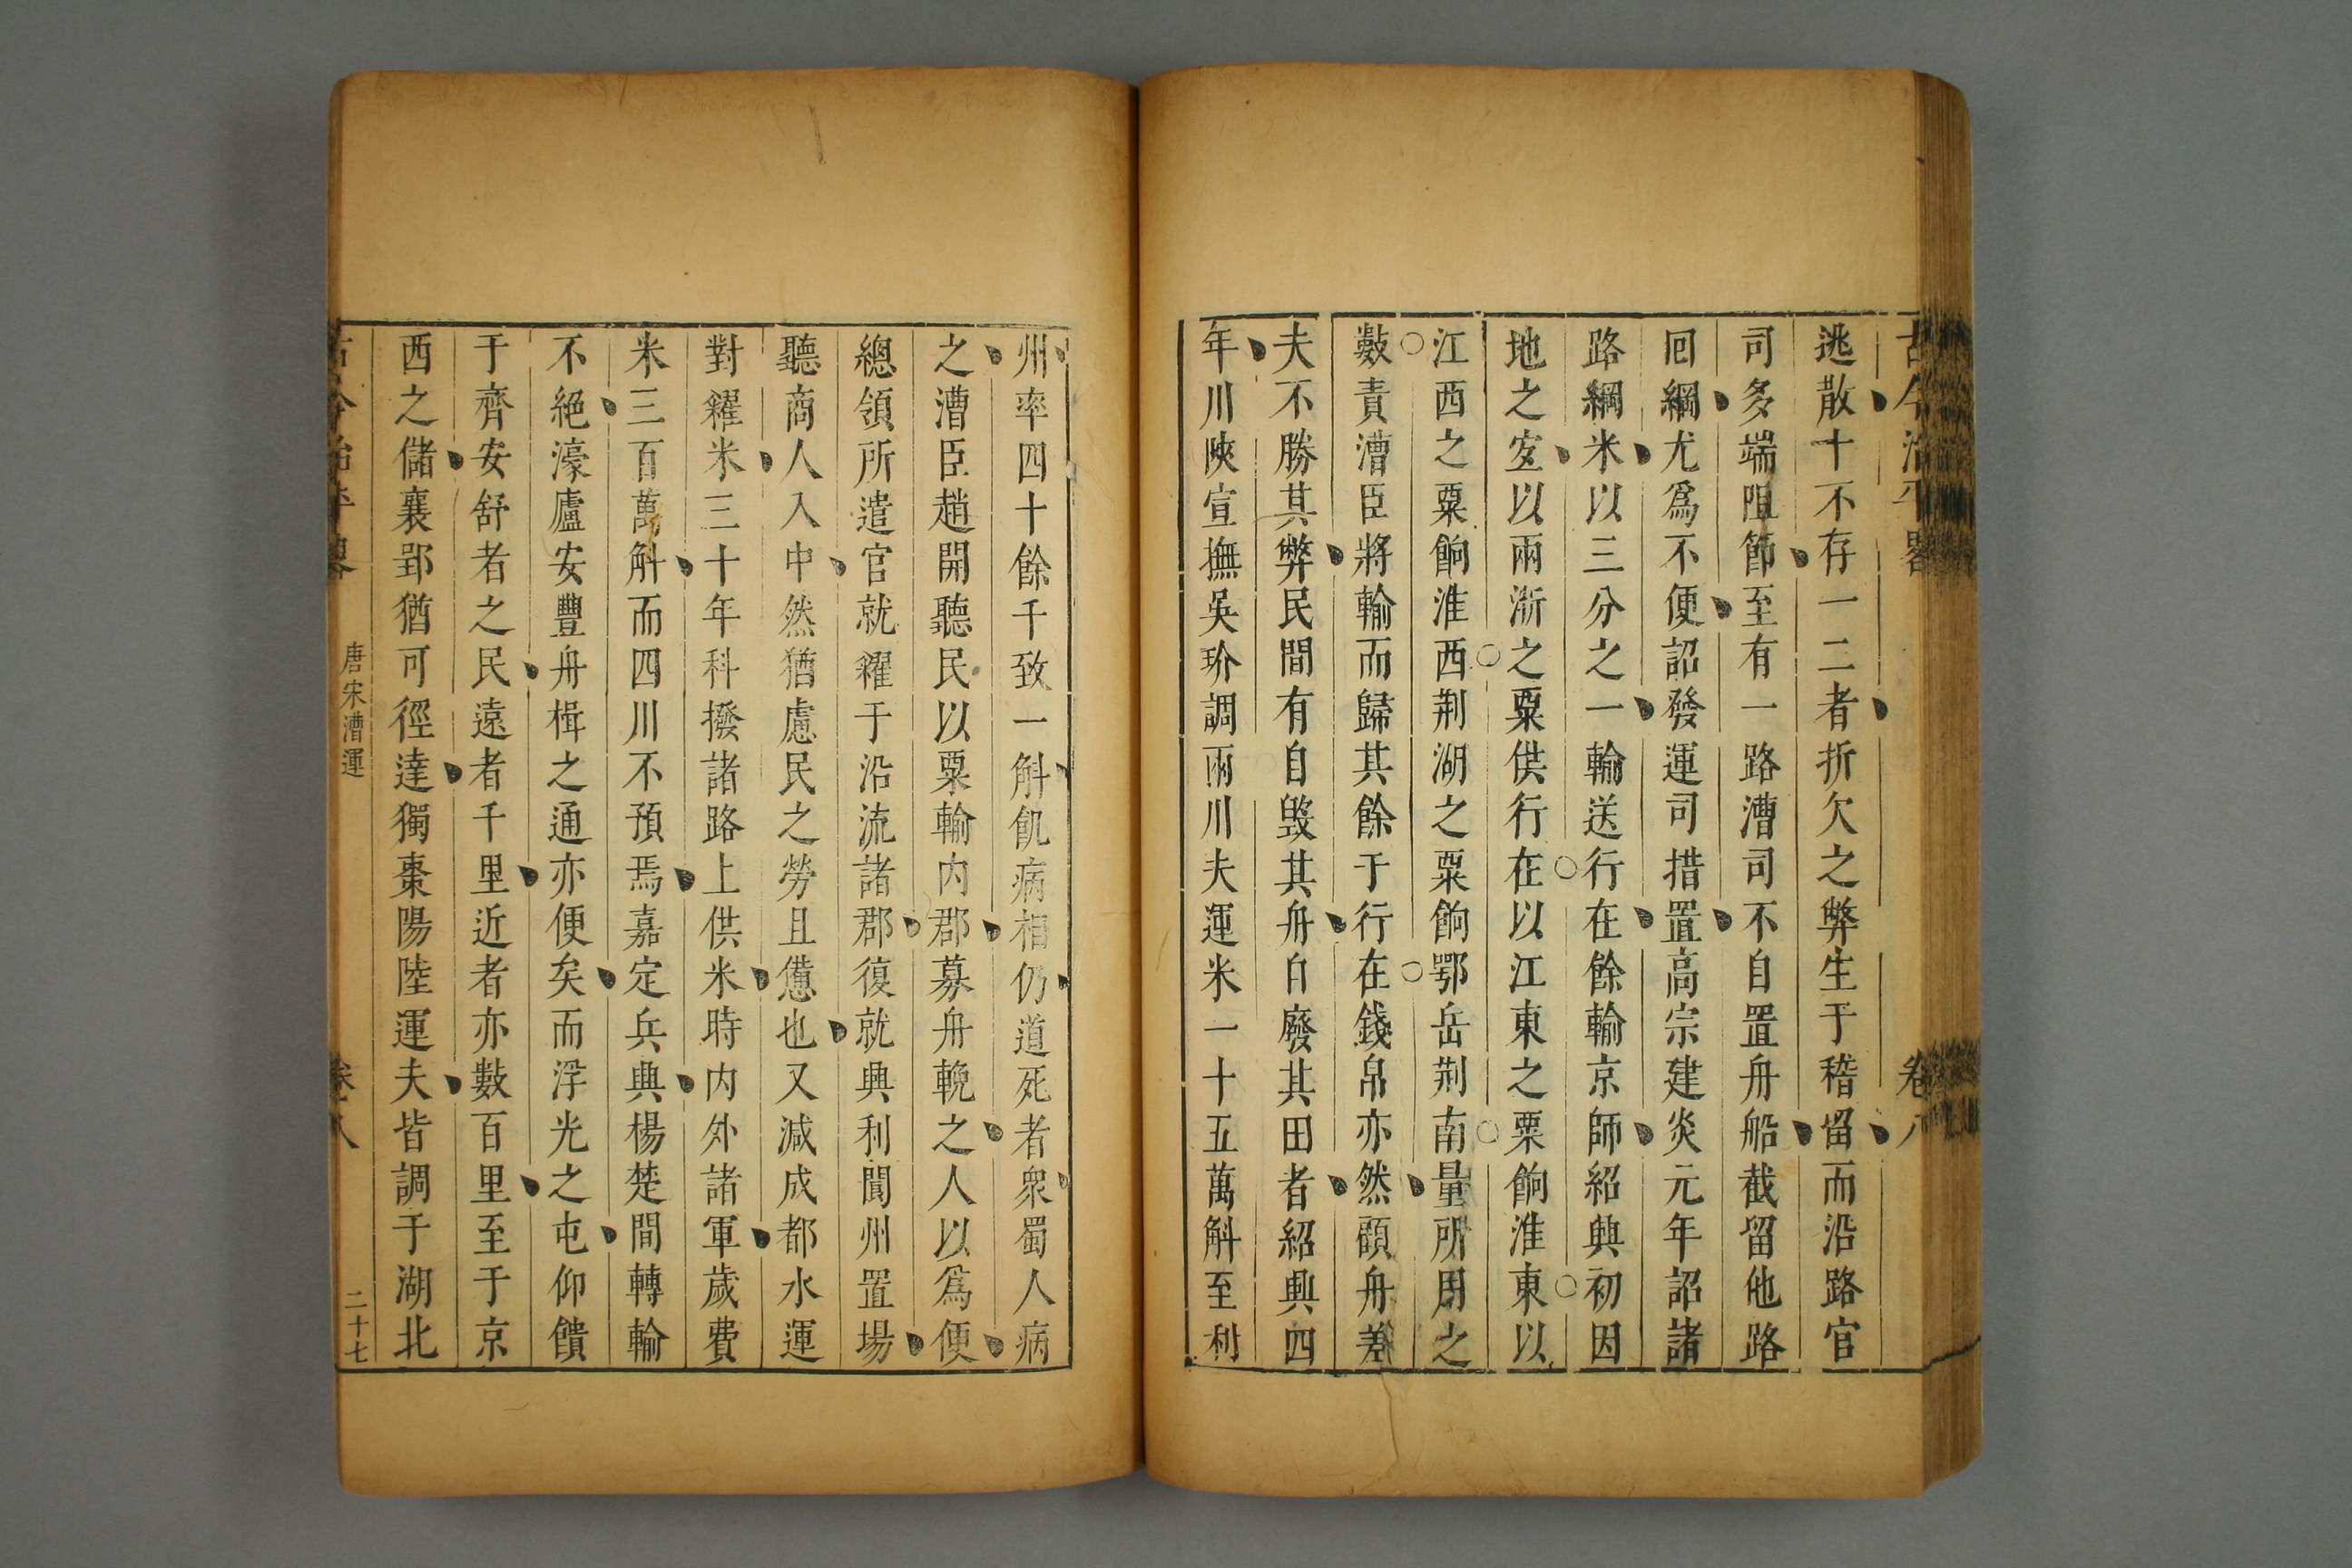 古今治平畧
卷八
逃散十不存一二者折欠之弊生于稽留而沿路官
司多端阻節至有一路漕司不自置舟船截留他路
回綱尤爲不便詔發運司措置高宗建炎元年詔諸
路綱米以三分之一輸送行在餘輸京師紹興初因
地之宐以兩浙之粟供行在以江東之粟餉淮東以
江西之粟餉淮西荆湖之粟餉鄂岳荆南量所用之
數責漕臣將輸而歸其餘于行在錢帛亦然顧舟差
夫不勝其弊民間有自毀其舟自廢其田者紹興四
年川陝宣撫吳玠調兩川夫運米一十五萬斛至利
州率四十餘千致一斛飢病相仍道死者衆蜀人病
之漕臣趙開聽民以粟輸内郡募舟輓之人以爲便
總領所遣官就糴于沿流諸郡復就興利閬州置場
聽商人入中然猶慮民之勞且憊也又減成都水運
對糴米三十年科撥諸路上供米時内外諸軍歲費
米三百萬斛而四川不預焉嘉定兵興楊楚間轉輸
不絕濠廬安豐舟楫之通亦便矣而浮光之屯仰饋
于齊安舒者之民遠者千里近者亦數百里至于京
西之儲襄郢猶可徑達獨棗陽陸運夫皆調于湖北
古今治平畧
唐宋漕運
卷八
二十七